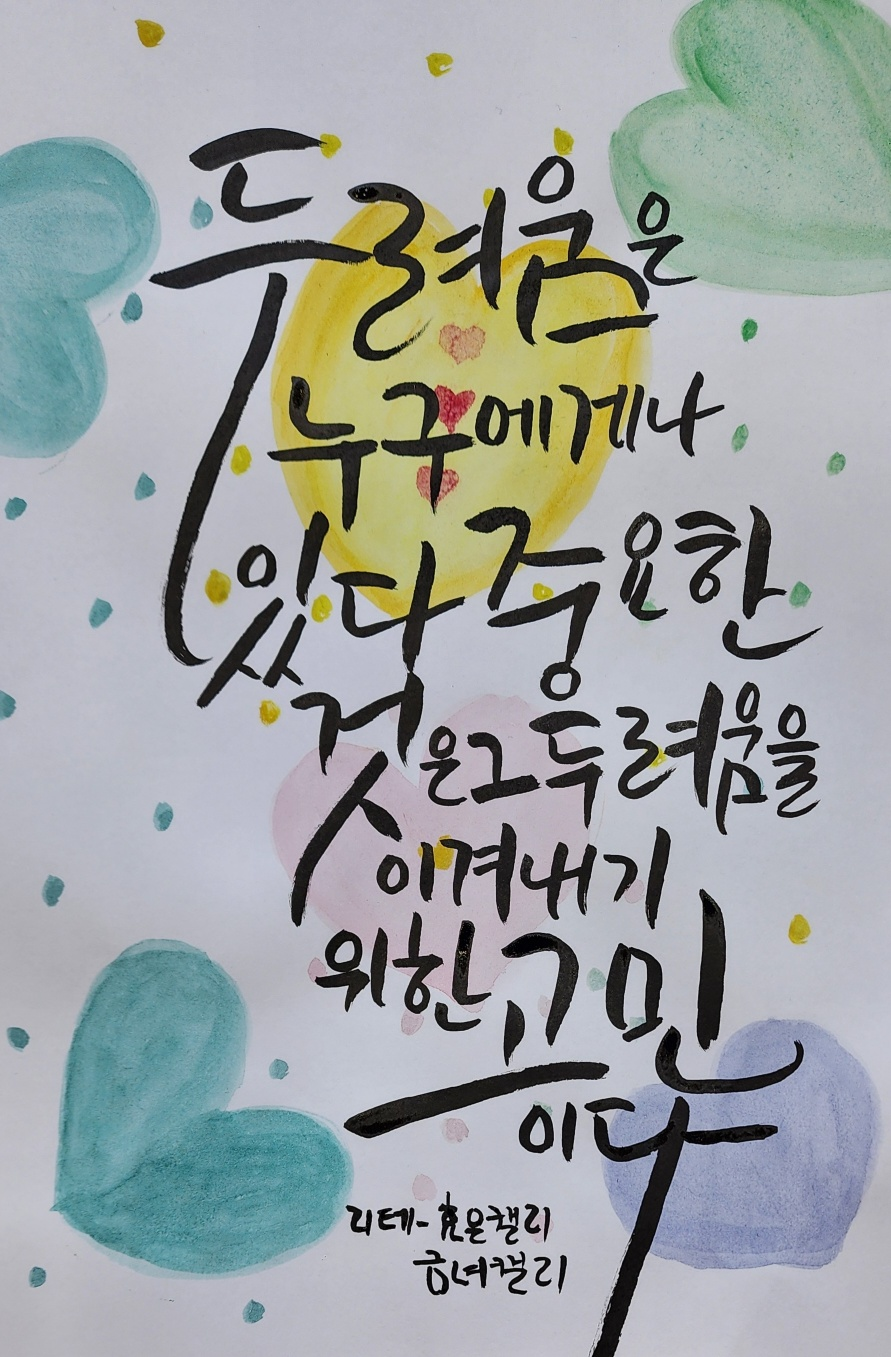 두려움은
누구에게나
있다 중요한
것은 그 두려움을
이겨내기
위한 고민
이다
리테-효은캘리
금녀캘리